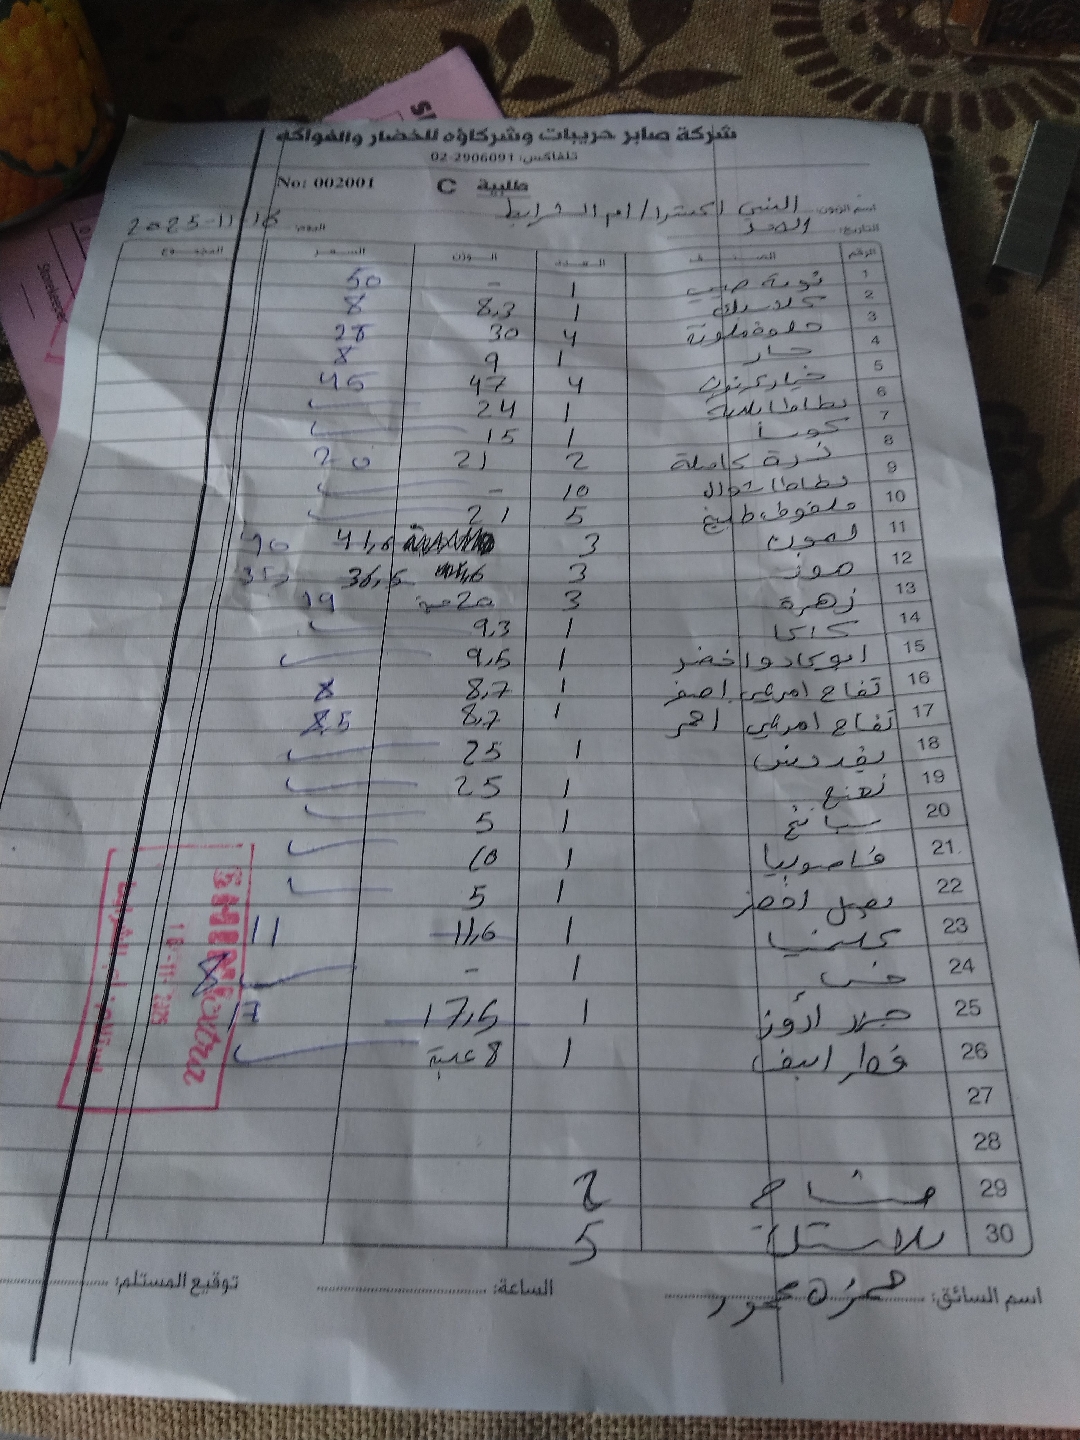 شركة صابر حريبات وشركاؤه للخضار والفواكه
تلفاكس: 02-2906091
No: 002001 طلبية C
اسم الزبون: اكسترا / ام الشرايط
التاريخ: اليوم: 2025-11-18
الرقم الصنف العدد الوزن السعر المجموع
1 ثومة حبيب 1 - 50
2 كلاسيك 1 8,3 8
3 حلوة ملونة 4 30 28
4 حار 1 9 8
5 خيار كرتون 4 47 45
6 بطاطا بلدية 1 24
7 كوسا 1 15
8 ذرة كاملة 2 21 20
9 بطاطا شوال 10 -
10 ملفوف طبيخ 5 21
11 ليمون 3 41,6 40
12 موز 3 36,5 35
13 زهرة 3 20 حبة 19
14 كاكا 1 9,3
15 افوكادو اخضر 1 9,5
16 تفاح امريكي اصفر 1 8,7 8
17 تفاح امريكي احمر 1 8,7 8,5
18 بقدونس 1 25
19 نعنع 1 25
20 سبانخ 1 5
21 فاصوليا 1 10
22 بصل اخضر 1 5
23 كلمنتينا 1 11,6 11
24 خس 1 - 8
25 1 17,5 17
26 فطر ابيض 1 8 علبة
27
28
29 مشتاح 2
30 بلاستك 5
اسم السائق: حمزة محمود الساعة: توقيع المستلم:
SHINI extra
18-11-2025